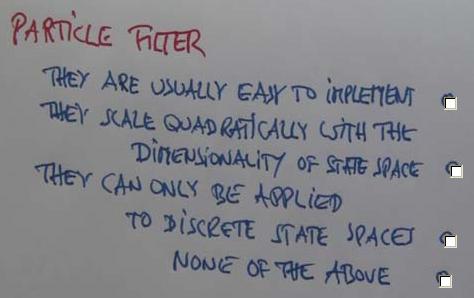 PARTICLE FILTER
THEY ARE USUALLY EASY TO IMPLEMENT
THEY SCALE QUADRATICALLY WITH THE
DIMENSIONALITY OF STATE SPACE
THEY CAN ONLY BE APPLIED
TO DISCRETE STATE SPACES
NONE OF THE ABOVE